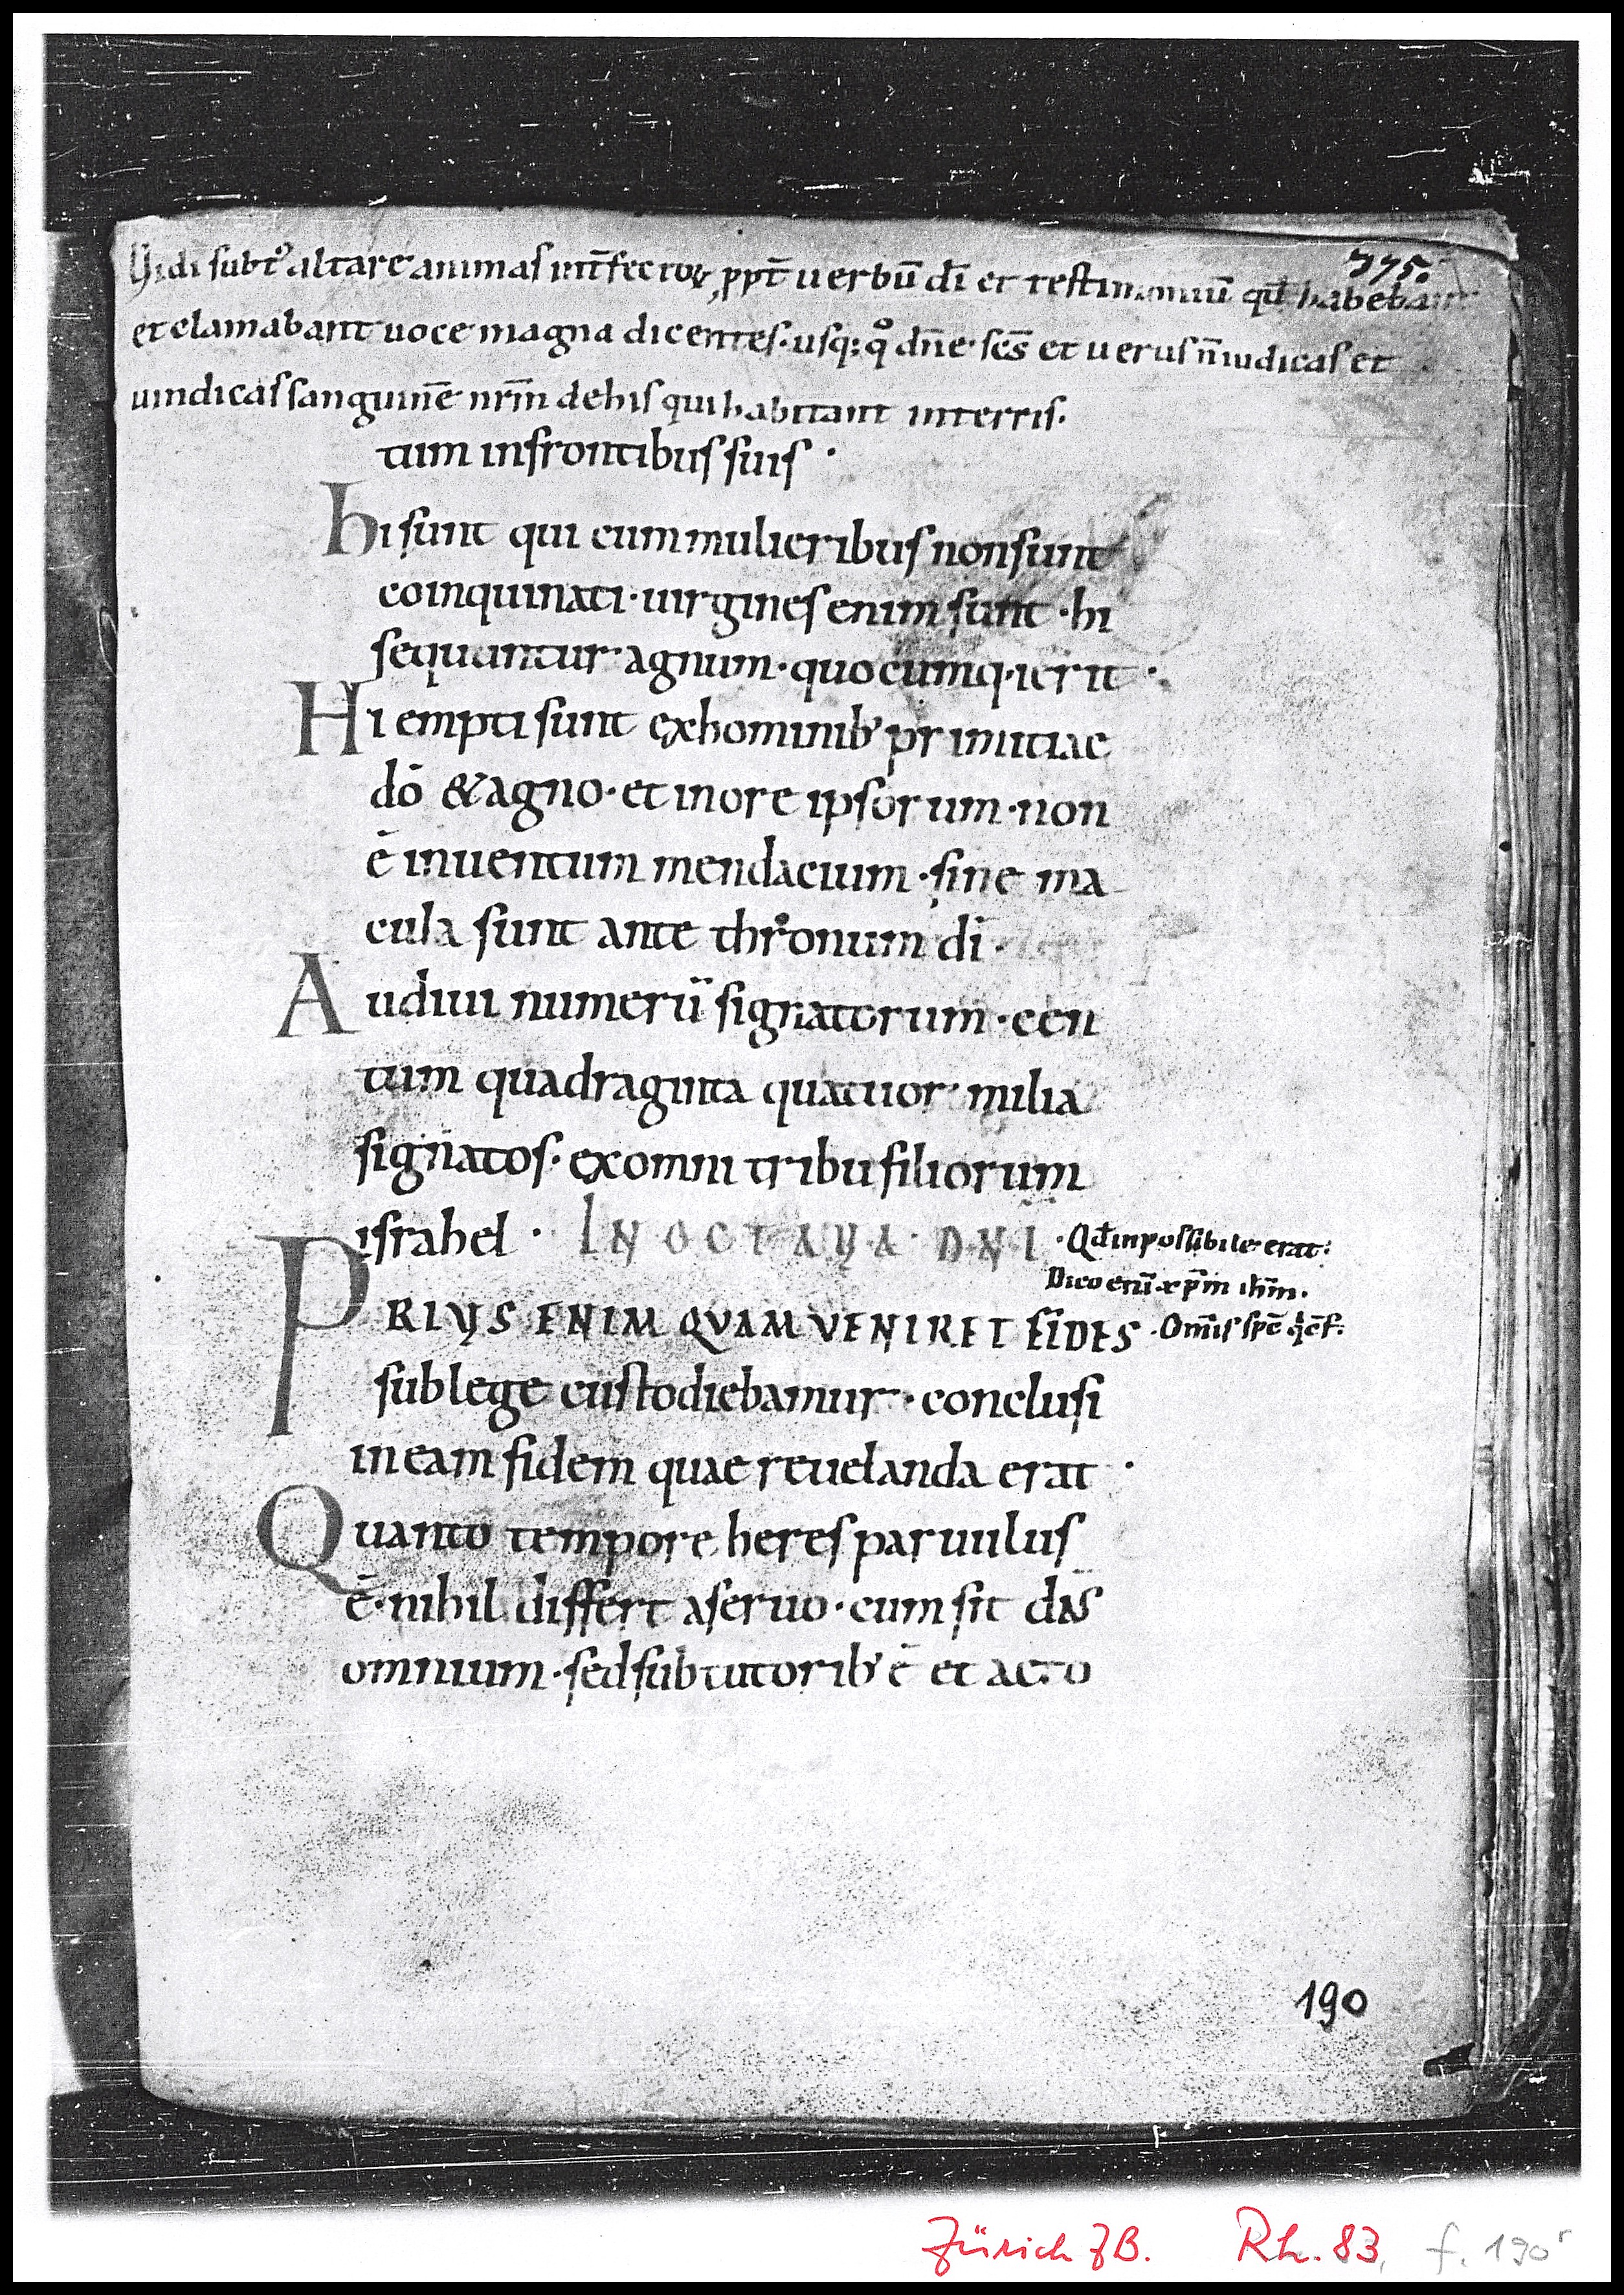 375.
Vidi subt᷒ altare animas int̄fectoꝝ ꝓpt̄ uerbū dī et testimoniū qd̄ habebant
et clamabant uoce magna dicentes· usq; qͦ dn̄e· scs̄ et uerus n̄ iudicas et
uindicas sanguinē nrm̄ de his qui habitant in terris.
tum in frontibus suis ·
hi sunt qui cum mulieribus non sunt
coinquinati· uirgines enim sunt · hi
sequuntur agnum· quocumq· ierit ·
Hi empti sunt ex hominib' primitiae
dō & agno· et in ore ipsorum· non
ē inuentum mendacium · sine ma
cula sunt ante thronum dī ·
Audiui numerū signatorum · cen
tum quadraginta quattuor milia
signatos· ex omni tribu filiorum
israhel · IN OCTAVA· DNI · Qd̄ inpossibile erat:
Dico enī xp̄m ihm̄.
PRIUS ENIM QVAM VENIRET FIDES ·Om̄is
sub lege custodiebamur · conclusi
in eam fidem quae reuelanda erat ·
Quanto tempore heres paruulus
ē· nihil differt a seruo · cum sit dn̄s
omnium · sed sub tutorib' ē et acto
190
Zürich ZB. Rh. 83, f. 190r